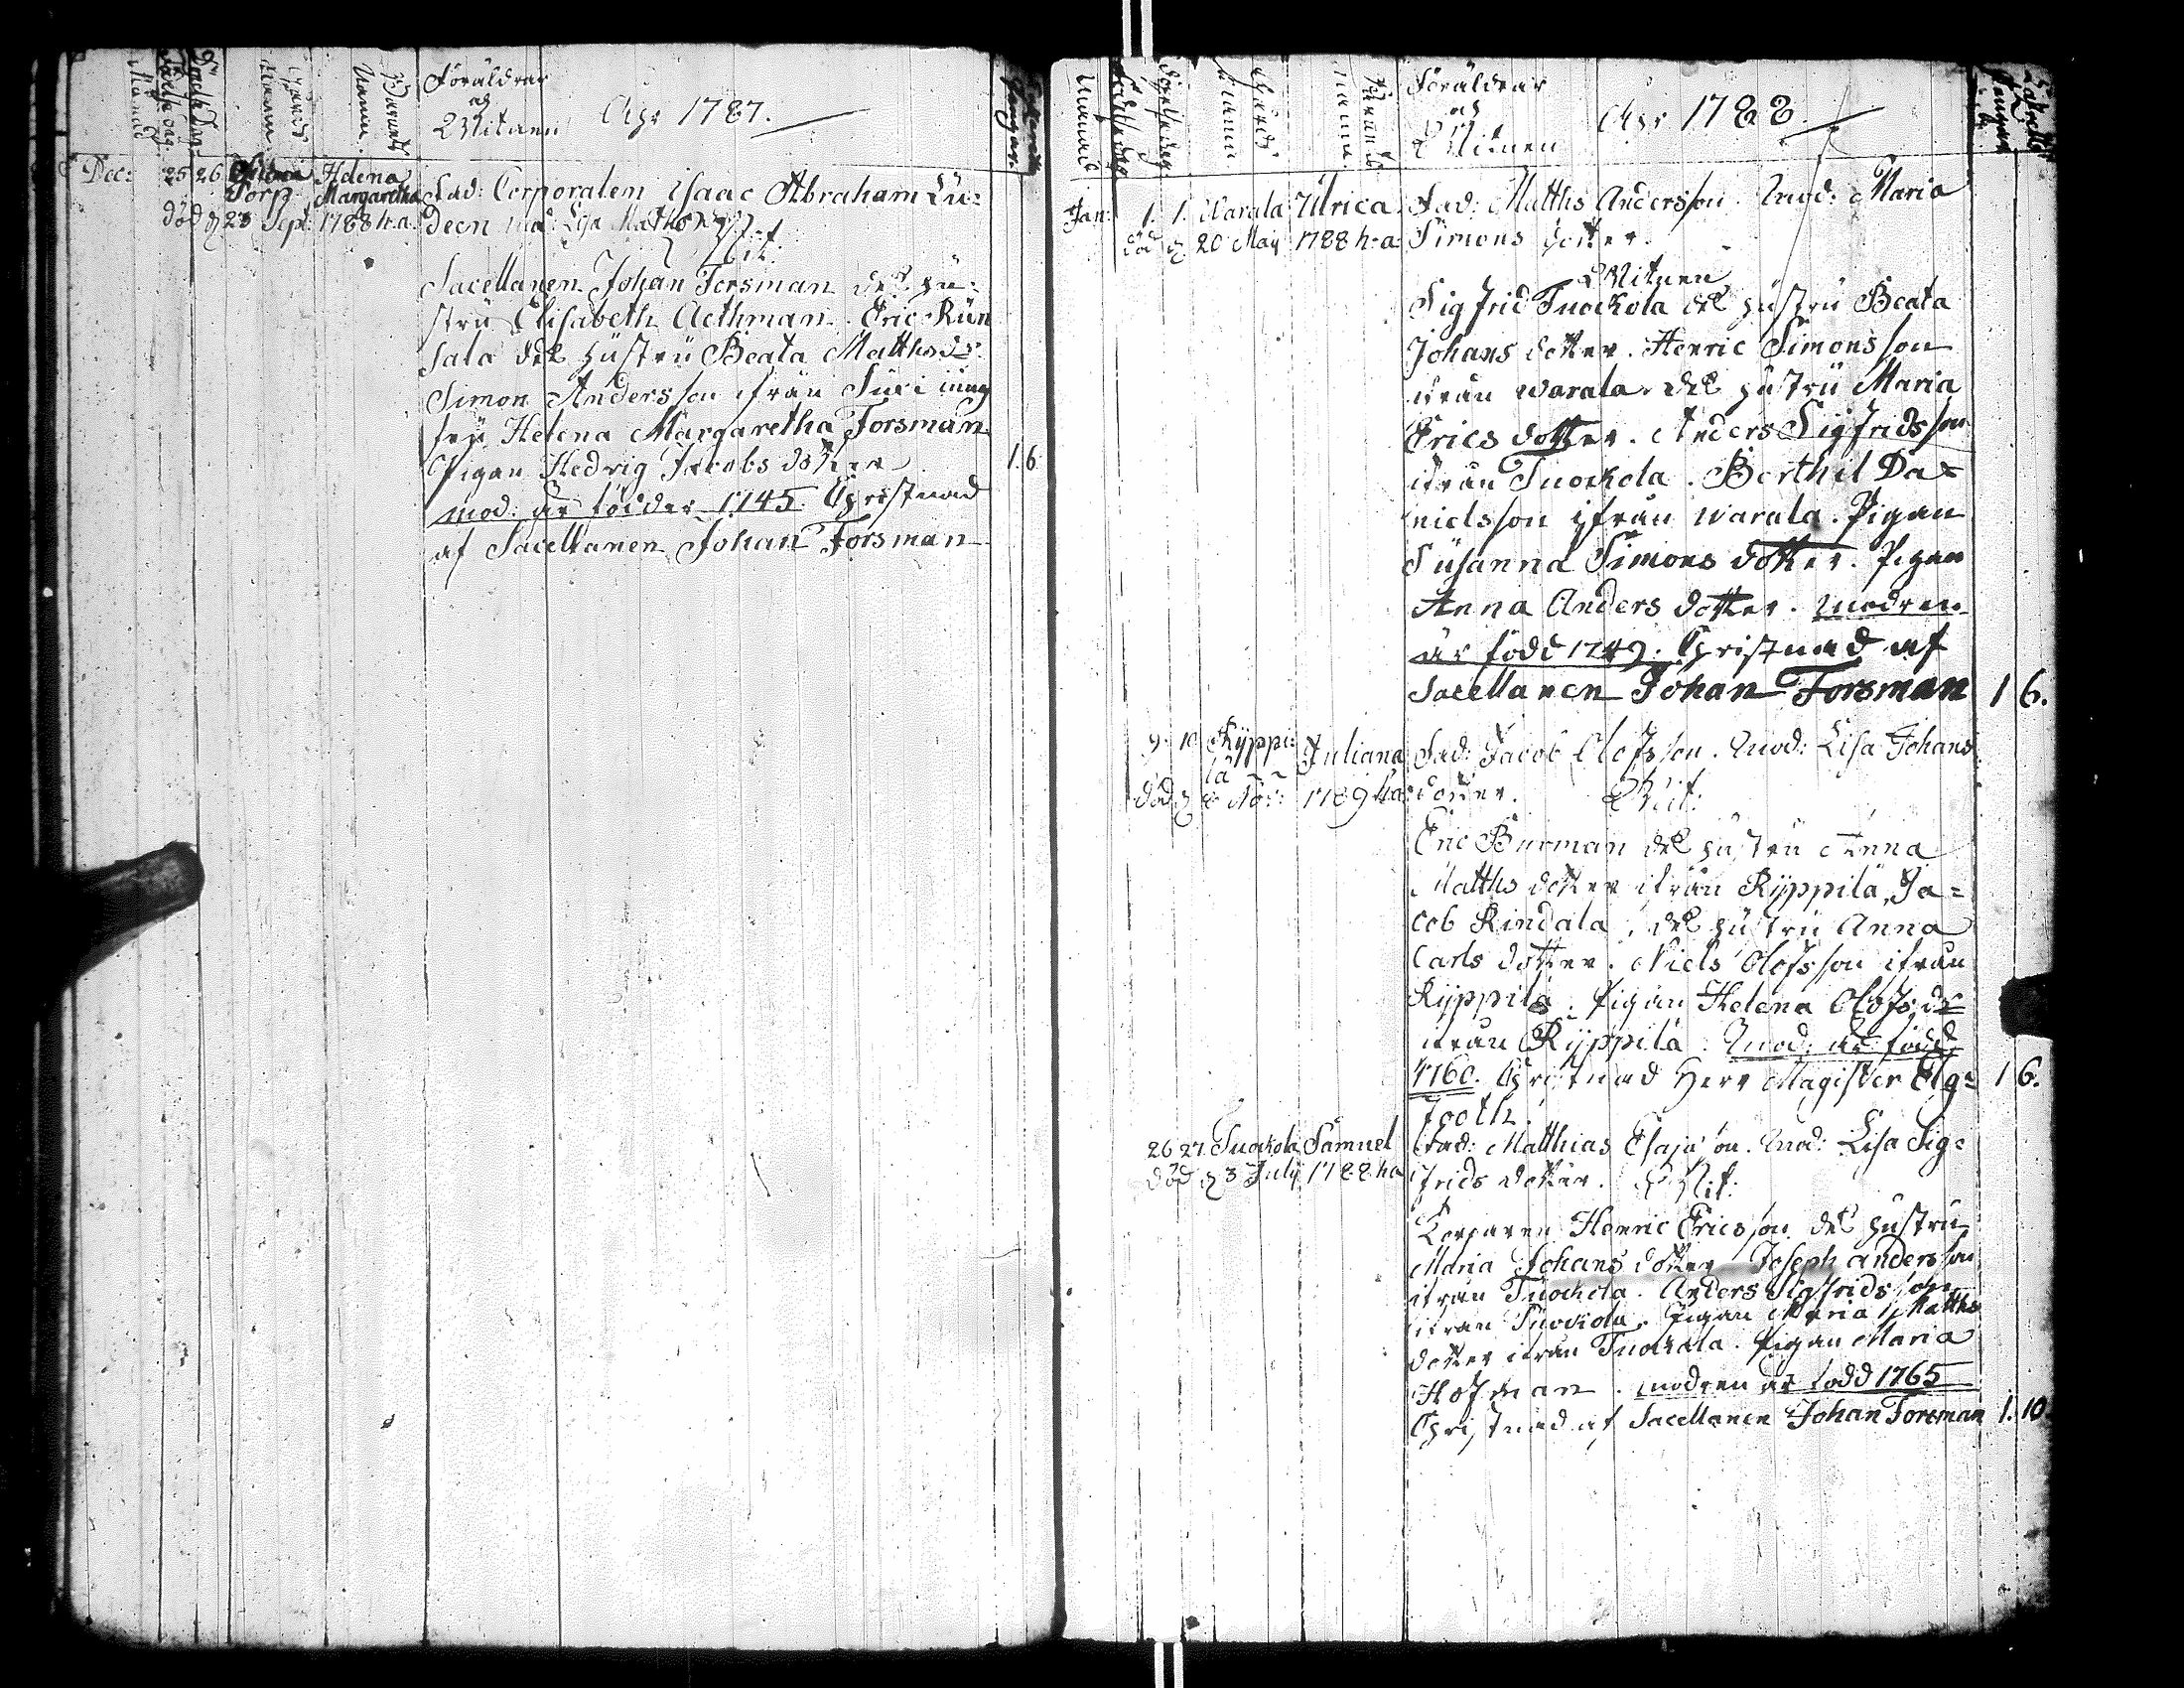 Föräldrar
och
Witnen
Åhr 1787.
Barnets
Namn
Dec: 25 26 Torp Helena
Margaretha
död d 23 Sept: 1788 h.a.
Fad: Corporalen Isaac Abraham Lu=
deen Mod: Lisa Matths dr
Wit:
Sacellanen Johan Forsman dess hu=
stru Elisabeth Aethman. Eric Kün
sala dess hustru Beata Matths dr
Simon Andersson ifrån
fru Helena Margaretha Forsman
Pigan Hedvig Jacobs dotter 1. 6
Mod: är födder 1745. Christnad
af Sacellanen Johan Forsman
Föräldrar
och
Witnen
Åhr 1788.
Barnets
Namn
Jan: 1. 1. Warala Ulrica
död d 20 May 1788 h: a:
Fad: Matths Andersson. Mod: Maria
Simons dotter.
Witnen
Sigfrid Tuockola dess hustru Beata
Johans dotter. Henric Simonsson
ifrån Warala. dess hustru Maria
Erics dotter. Anders Sigfridsson
ifrån Tuockola. Berthil Da=
nielsson ifrån Warala. Pigan
Susanna Simons dotter. Pigan
Anna Anders dotter. Modren
är född 1749. Christnad af
Sacellanen Johan Forsman 1 6.
9. 10 Ryppi=
lä Juliana
död d 8 Nov: 1789 h.a:
Fad: Jacob Olofsson. Mod: Lisa Johans
dotter. Wit:
Eric Burman dess hustru Anna
Matths dotter ifrån Ryppilä, Ja=
cob Rindala, dess hustru Anna
Carls dotter. Niels Olofsson ifrån
Ryppilä. Pigan Helena Olofs dr
ifrån Ryppilä. Mod: är född
1760. Christnad Herr Magister Elg= 1 6.
footh.
26 27. Tuockola Samuel
död d 3 July 1788 h.a
Fad: Matthias Esajsson. Mod: Lisa Sig=
frids dotter. Wit:
Torparen Henric Ericsson dess hustru
Maria Johans dotter Joseph Andersson
ifrån Tuockola. Anders Sigfridsson
ifrån Tuockola. Pigan Maria Matths
dotter ifrån Tuockola. Pigan Maria
Hofman. Modren är född 1765
Christnad af Sacellanen Johan Forsman 1. 10